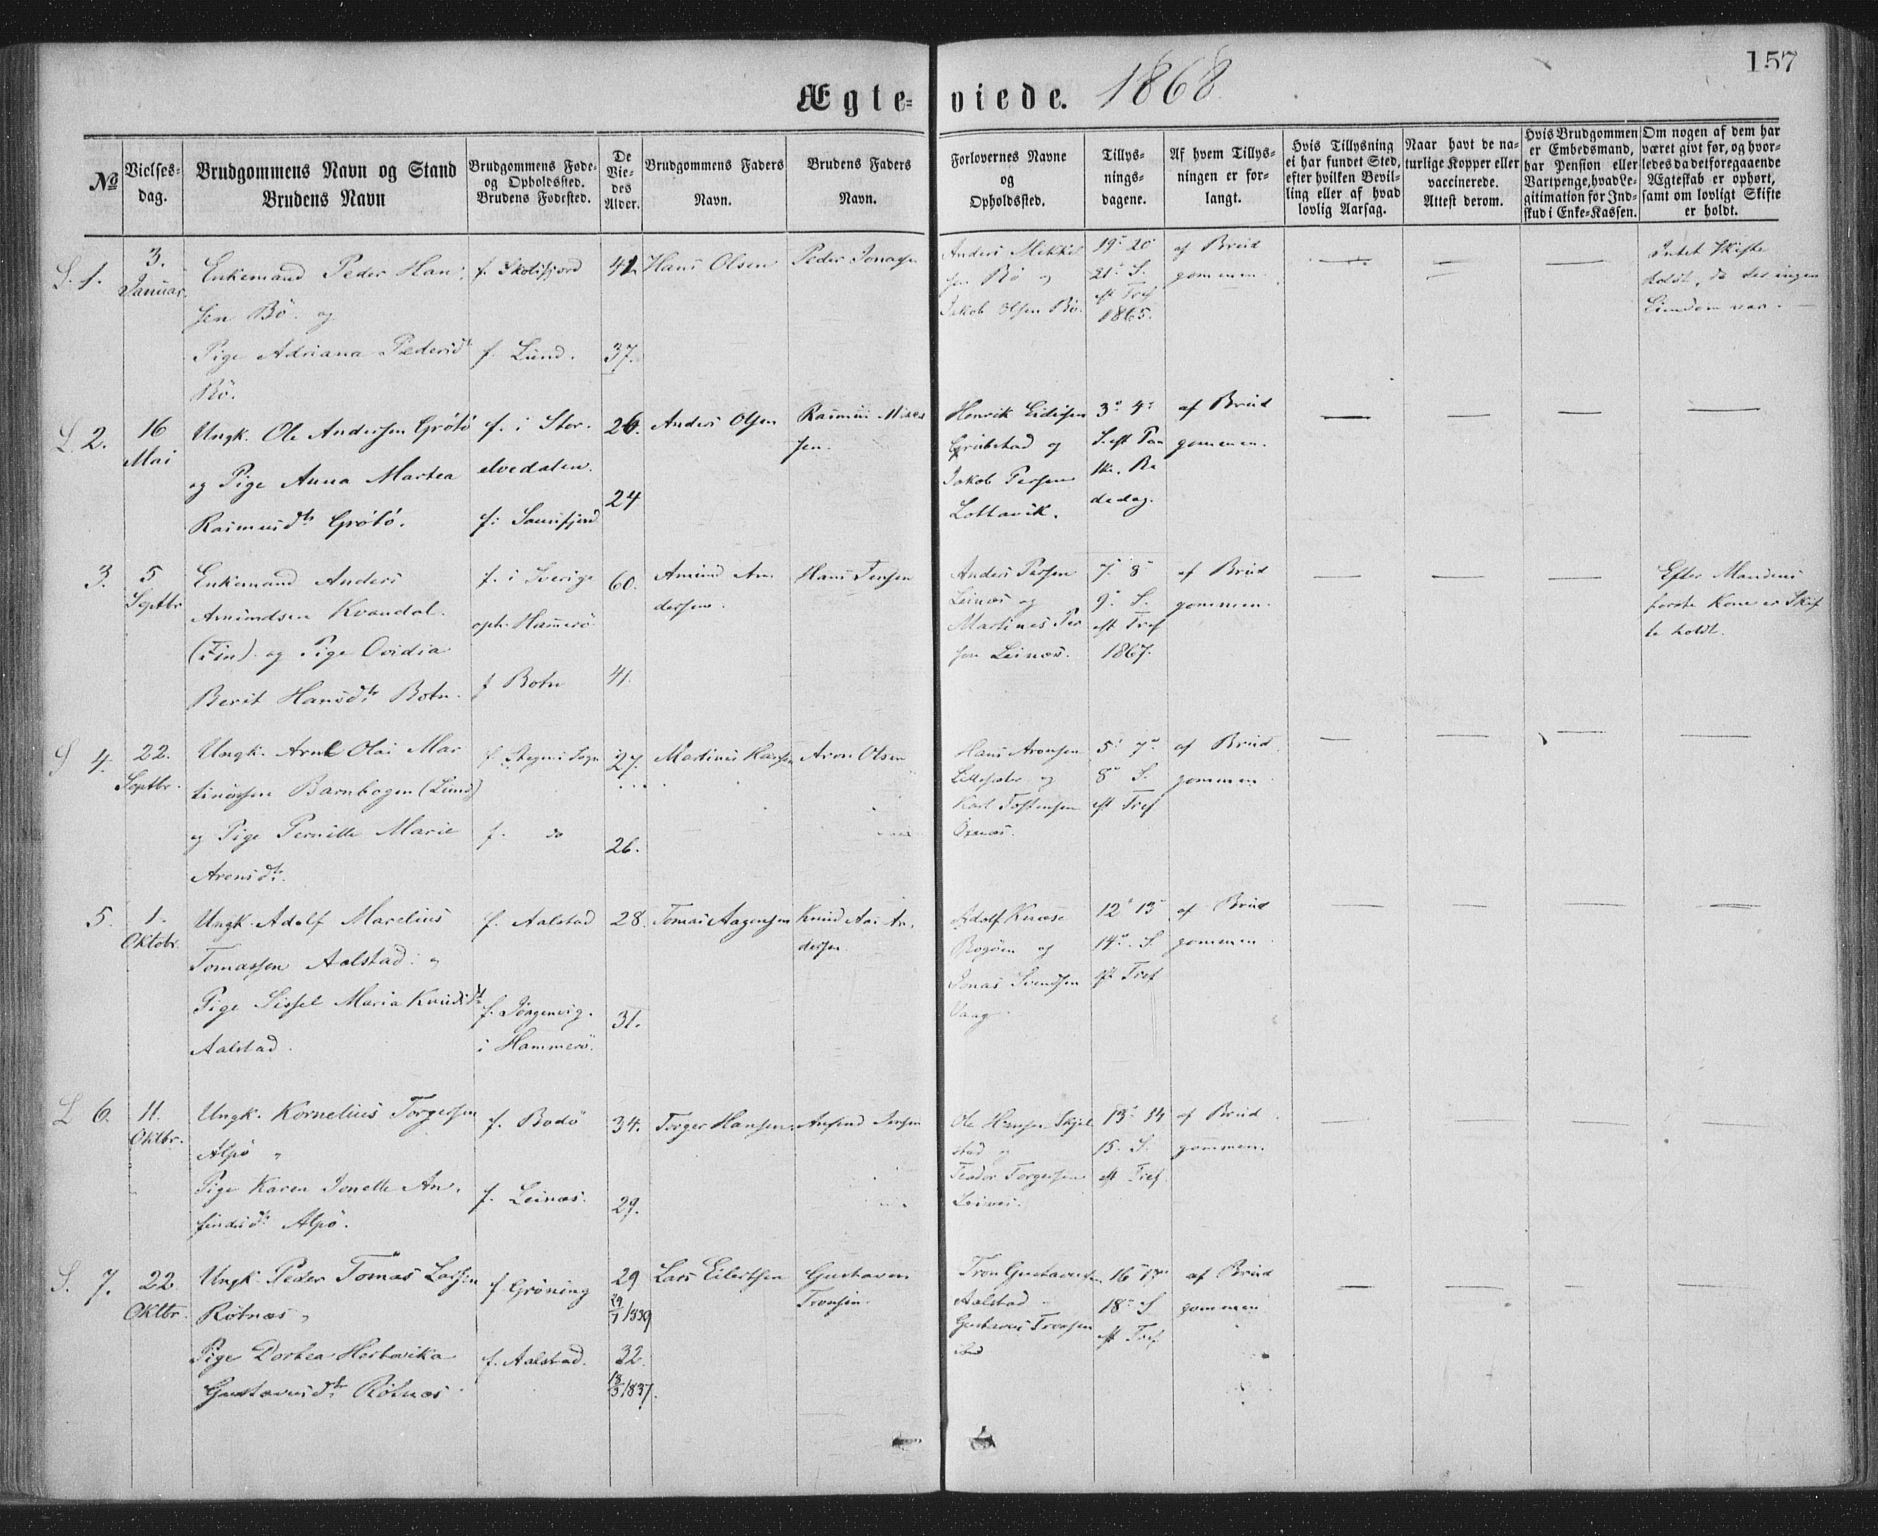 157
Ægteviede. 1868
No
Vielsesdag.
Brudgommens Navn og Stand
Brudens Navn
Brudgommens Føde- og Opholdssted.
Brudens Fødested.
De Viedes Alder.
Brudgommens Faders Navn.
Brudens Faders Navn.
Forlovernes Navne og Opholdsted.
Tillysningsdagene.
Af hvem Tillysningen er forlangt.
Hvis Tillysning ei har fundet Sted, efter hvilken Bevilling eller af hvad lovlig Aarsag.
Naar havt de naturlige Kopper eller vaccinerede. Attest derom.
Hvis Brudgommen er Embedsmand, har Pension eller Vartpenge, hvad Legitimation for Indskud i Enke-Kassen.
Om nogen af dem har været givt før, og hvorledes da det foregaaende Ægteskab er ophørt, samt om lovligt Skifte er holdt.
1.
3.
Januar.
Enkemand Peder Han-
sen Bö. og
Pige Adriana Pedersdt
Bö.
f. Skotsfjord
f. Lund.
41
37.
Hans Olsen
Peder Jonassen
Anders Mikkel
sen Bö og
Jakob Olsen Bö.
19 20
21 S.
eft Tref
1865.
af Brud
gommen
Intet Skifte
holdt, da der ingen
Eiendom var.
L 2.
16
Mai
Ungk. Ole Andersen Grötö
og Pige Anna Martea
Rasmusdtr Grötö.
f. i Stor-
elvedalen.
f. i Sansfjord
26.
24
Anders Olsen
Rasmus
sen.
Henrik
og
Jakob Persen
Lottavik.
3 4
S. eft Paa
ske. Be
dedag.
af Brud
gommen.
3.
5
Septbr
Enkemand Anders
Amundsen Kvandal.
(Fin). og Pige Ovidia
Berit Hansdtr Botn.
f. i Sverige
oph. Hamerö
f Botn
60.
41.
Amund An
dersen.
Hans Jensen
Anders Persen
Leinæs og
Martines Per
sen Leinæs.
7. 8
9. S.
eft Tref
1867.
af Brud
gommen.
Efter Mandens
første Kone er Skif
te holdt.
4.
22.
Septbr.
Ungk. Arnt Olai Mar
tinussen Barnhogen (Lund)
og Pige Pernille Marie
Aronsdtr.
f. Stegen i Sogn
f. do
27.
26.
Martinus Hansen
Aron Olsen
Hans Aronsen
og
Karl Tostensen
Öxnæs.
5 7
8 S.
eft Tref
af Brud
gommen
5.
1.
Oktobr.
Ungk. Adolf Marelius
Tomassen Aalstad. og
Pige Sissel Maria Knudsdt
Aalstad.
f. Aalstad
f. Jörgenvig.
i Hammerö.
28.
31.
Tomas Aagensen
Knud An-
dersen.
Adolf
Bogöen og
Jonas Svendsen
Vaag.
12 13
14. S.
eft Tref
af Brud
gommen
L 6.
11.
Oktbr.
Ungk. Kornelius Torgersen
Alpö
Pige Karen Jonette An-
findsdtr Alpö.
f. Bodö
f. Leinæs.
34.
29.
Torger Hansen
Anfind
Ole Hansen Skjel
stad og
Teodor Torgersen
Leinæs.
13 14
15. S.
eft Tref
af Brud
gommen.
S. 7.
22
Oktbr.
Ungk. Peder Tomas Larsen
Rötnæs
Pige Dortea Hertvika
Gustavusdtr Rötnæs
f Gröning
f. Aalstad.
29
29/7 1839
32.
18/3 1837.
Lars Eilertsen
Gustavus
Tronsen.
Tron Gustavussen
Aalstad
Gustavus Tronsen
16 17
18 S
eft Tref
af Brud
gommen